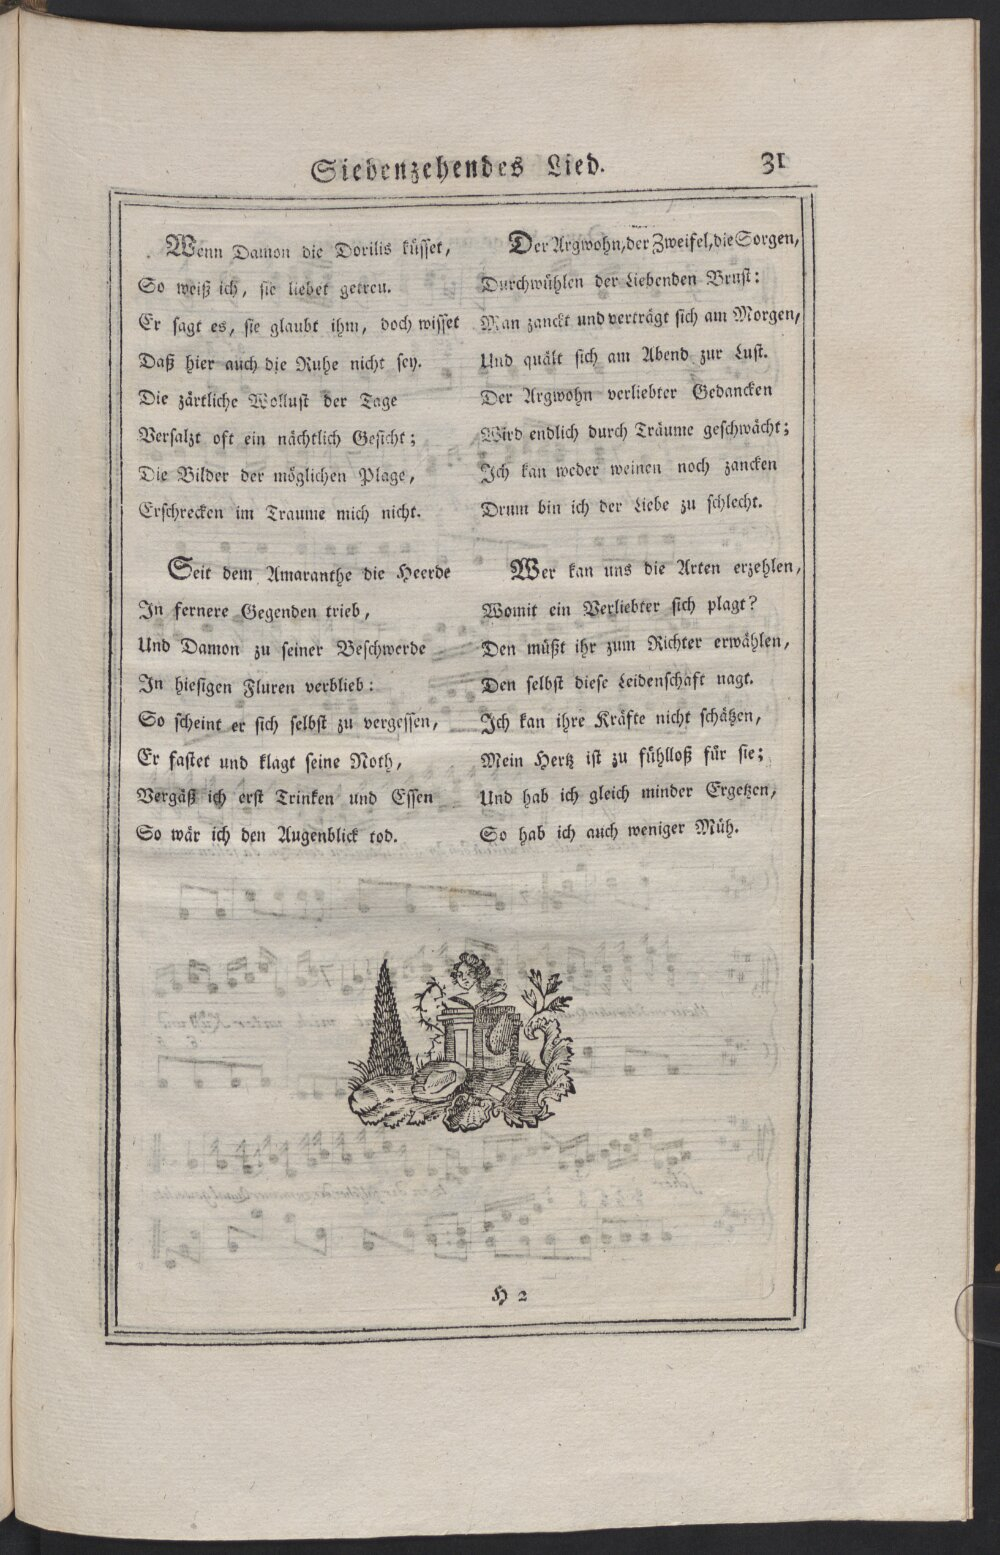 Siebenzehendes Lied. 31
Wenn Damon die Dorilis küsset,
So weiß ich, sie liebet getreu.
Er sagt es, sie glaubt ihm, doch wisset
Daß hier auch die Ruhe nicht sey.
Die zärtliche Wollust der Tage
Versalzt oft ein nächtlich Gesicht;
Die Bilder der möglichen Plage,
Erschrecken im Traume mich nicht.
Seit dem Amaranthe die Heerde
In fernere Gegenden trieb,
Und Damon zu seiner Beschwerde
In hiesigen Fluren verblieb:
So scheint er sich selbst zu vergessen,
Er fastet und klagt seine Noth,
Vergäß ich erst Trinken und Essen
So wär ich den Augenblick tod.
Der Argwohn, der Zweifel, die Sorgen,
Durchwühlen der Liebenden Brust:
Man zanckt und verträgt sich am Morgen,
Und quält sich am Abend zur Lust.
Der Argwohn verliebter Gedancken
Wird endlich durch Träume geschwächt;
Ich kan weder weinen noch zancken
Drum bin ich der Liebe zu schlecht.
Wer kan uns die Arten erzehlen,
Womit ein Verliebter sich plagt?
Den müßt ihr zum Richter erwählen,
Den selbst diese Leidenschaft nagt.
Ich kan ihre Kräfte nicht schätzen,
Mein Hertz ist zu fühlloß für sie;
Und hab ich gleich minder Ergetzen,
So hab ich auch weniger Müh.
H 2